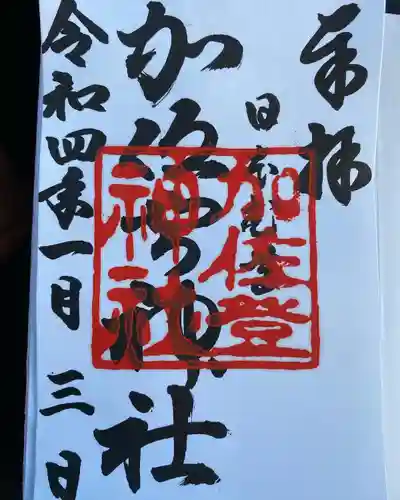 奉拝
日本
加佐登神社
令和四年一月三日
加佐登
神社